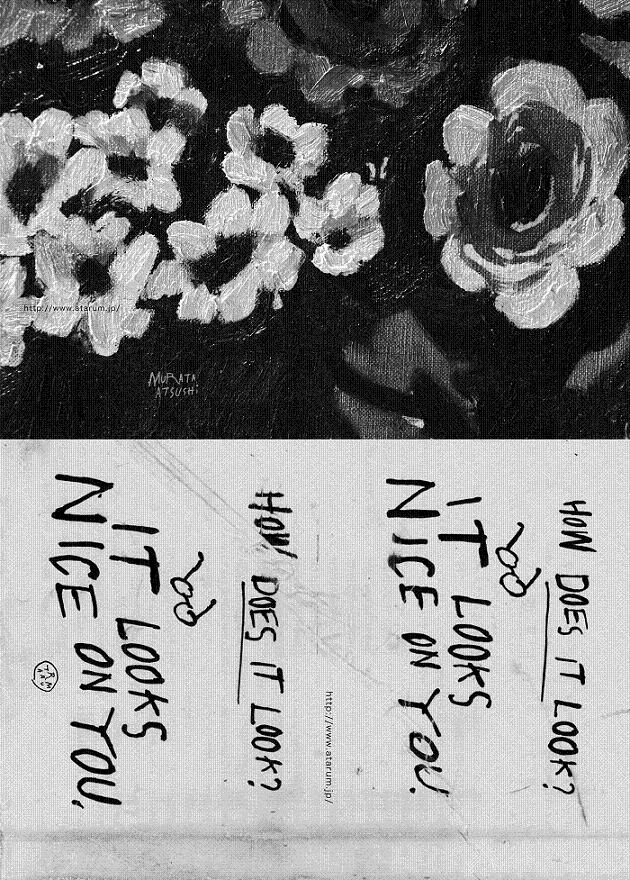 http://www.atarum.jp/
MURATA
ATSUSHi
HOW DOES IT LOOK?
IT LOOKS
NICE ON YOU,
http://www.atarum.jp/
HOW DOES IT LOOK?
IT LOOKS
NICE ON YOU.